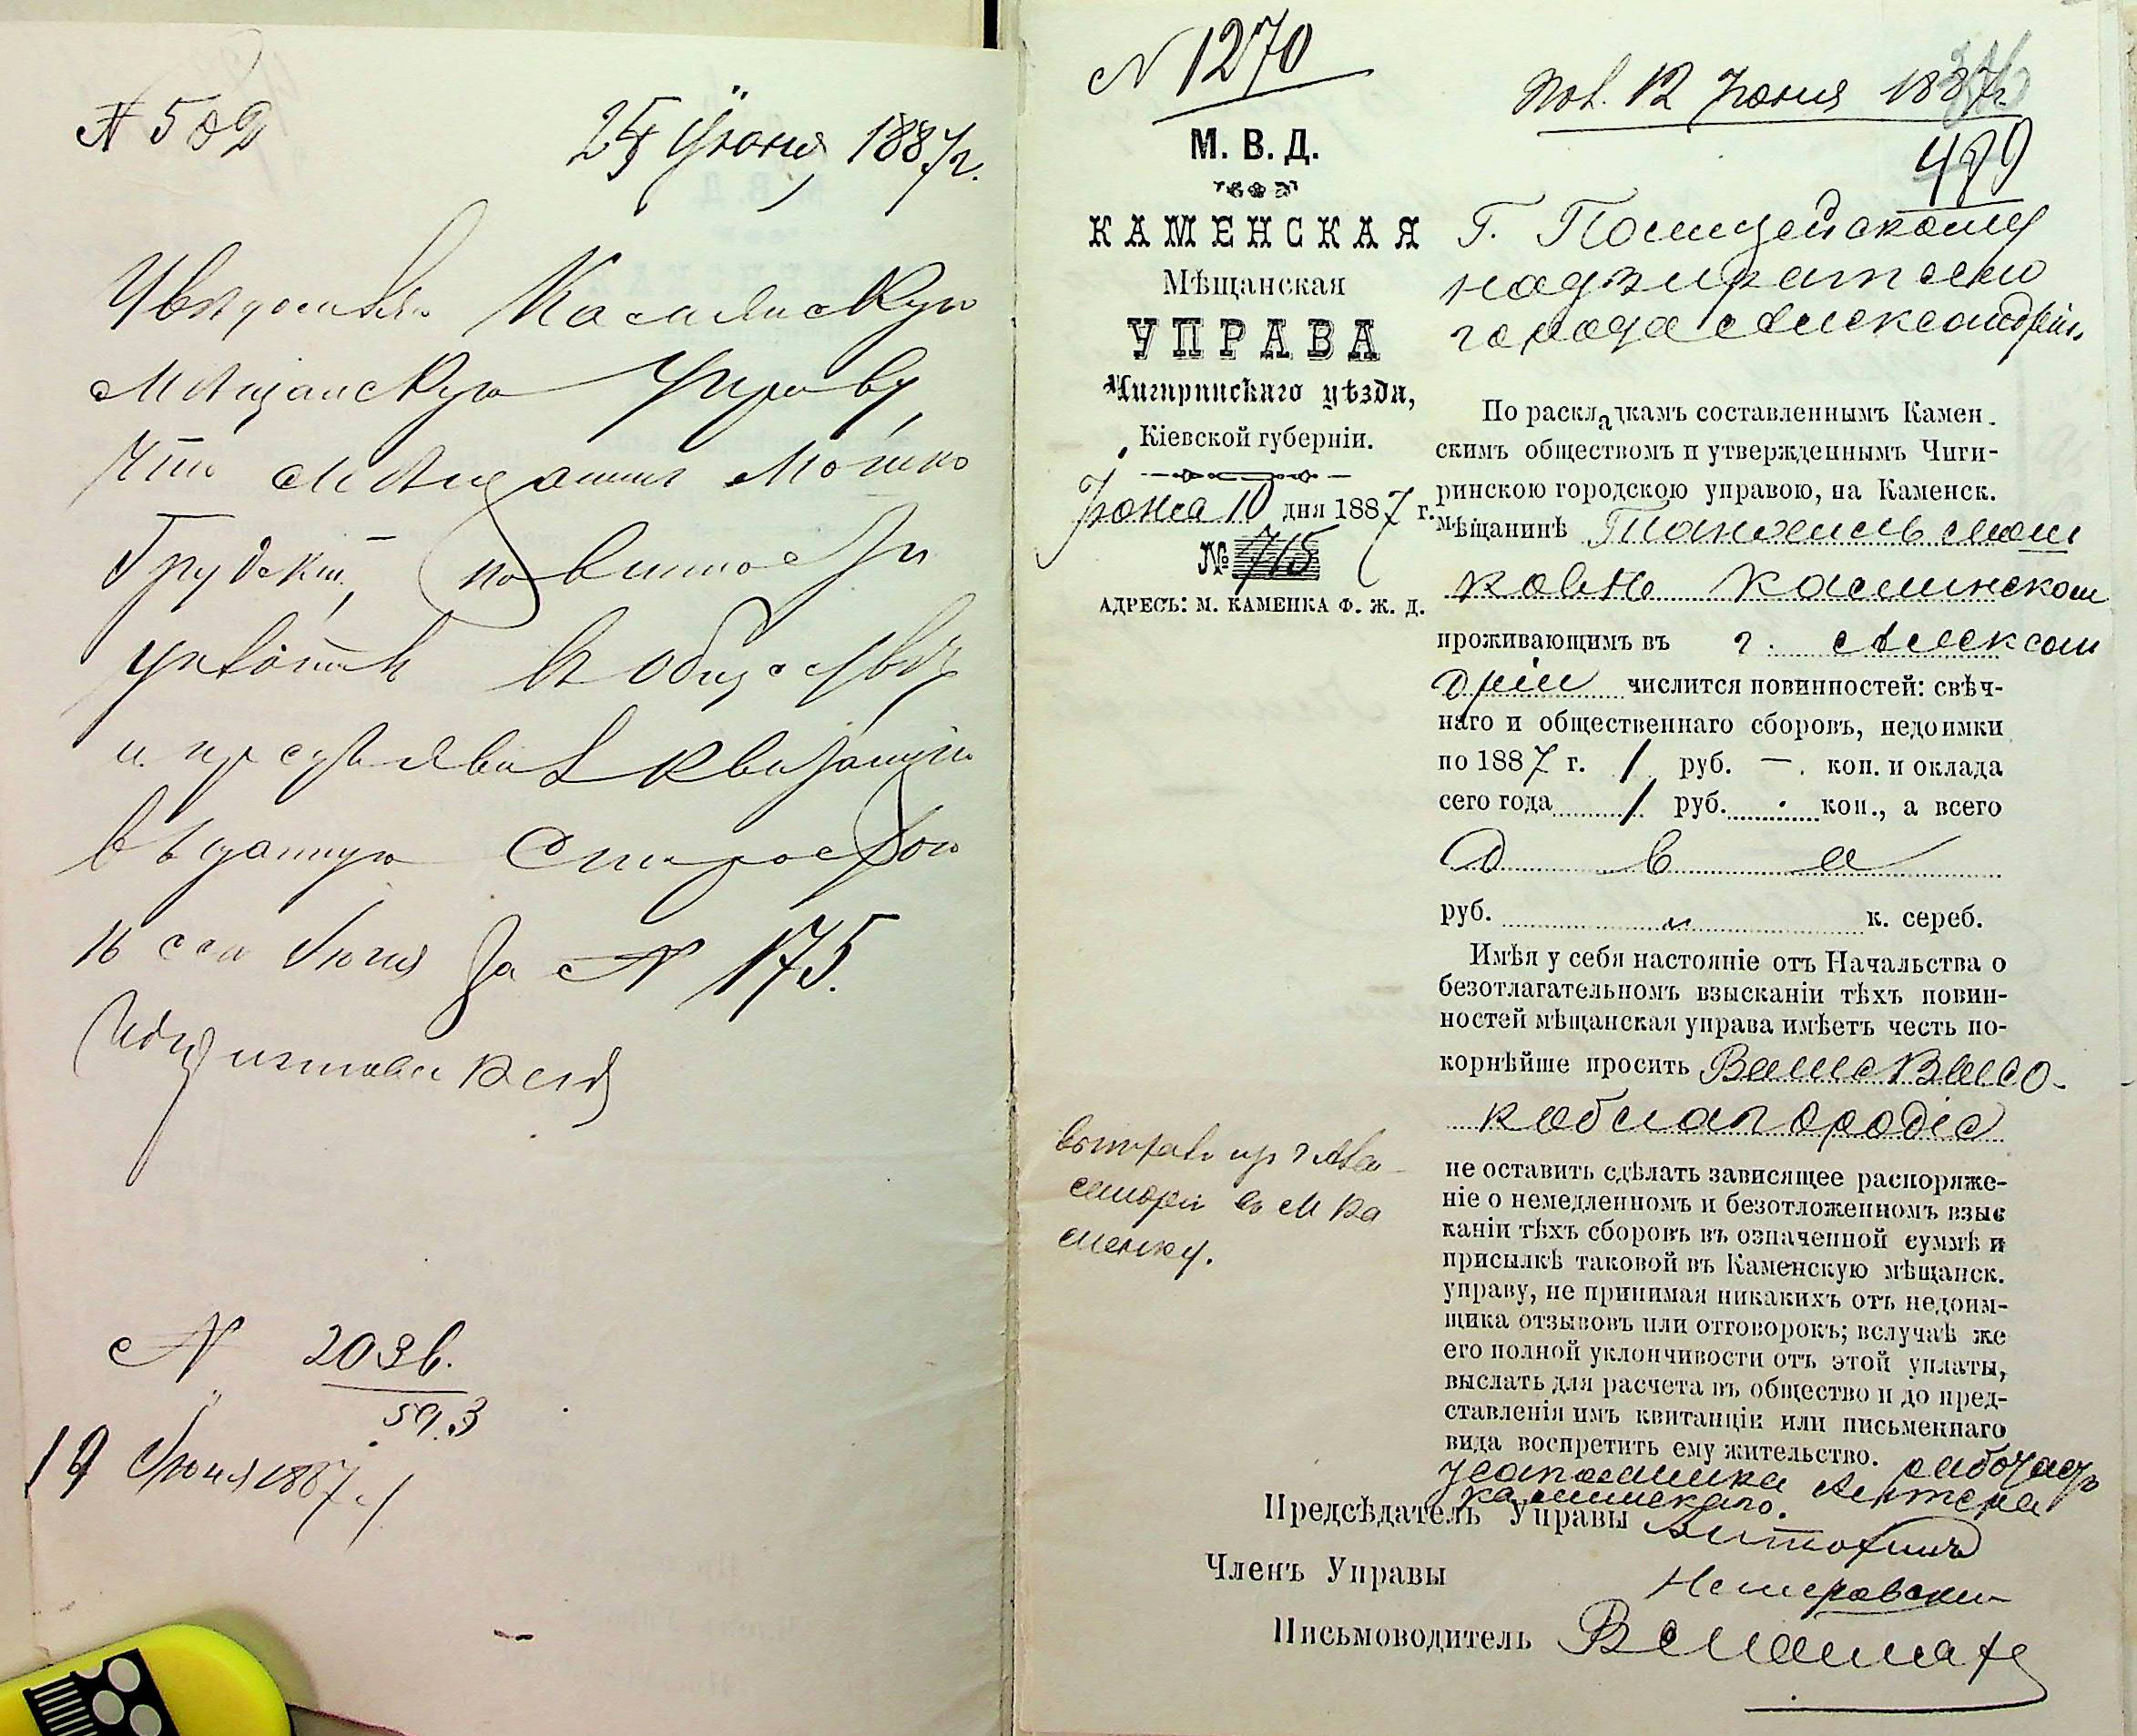 № 502
25 Юнія 1887 г.
Увѣдомляю Каменскую
Мѣщанскую Управу,
что мѣщанинъ Мошко
Грудскій, повинности
уплотилъ въ обществѣ
и предъявилъ квитанцію
выданную Старостою
16 сего Июня за № 175.
№ 2036.
593
19 Июня 1887 г.
№ 1270
Пол. 12 Юния 1887 г.
489
М. В. Д.
КАМЕНСКАЯ
Мѣщанская
УПРАВА
Чигиринскаго уѣзда,
Кіевской губерніи.
Юнія 10 дня 1887 г.
№ 715
АДРЕСЪ: М. КАМЕНКА Ф. Ж. Д.
Г. Полицейскому
надзирателю
города Александріи
По раскладкамъ составленнымъ Камен.
скимъ обществомъ и утвержденнымъ Чиги-
ринскою городскою управою, на Каменск.
мѣщанинѣ
проживающимъ въ г. Алексан
дріи числится повинностей: свѣч-
наго и общественнаго сборовъ, недоимки
по 1887 г. 1 руб. — коп. и оклада
сего года 1 руб. коп., а всего
Два
руб. к. сереб.
Имѣя у себя настояніе отъ Начальства о
безотлагательномъ взысканіи тѣхъ повин-
ностей мѣщанская управа имѣетъ честь по-
корнѣйше просить Ваше Высо-
коблагородіе
не оставить сдѣлать зависящее распоряже-
ніе о немедленномъ и безотложенномъ взыс
каніи тѣхъ сборовъ въ означенной суммѣ и
присылкѣ таковой въ Каменскую мѣщанск.
управу, не принимая никакихъ отъ недоим-
щика отзывовъ или отговорокъ; вслучаѣ же
его полной уклончивости отъ этой уплаты,
выслать для расчета въ общество и до пред-
ставленія имъ квитанціи или письменнаго
вида воспретить ему жительство.
Предсѣдатель Управы
Членъ Управы
Письмоводитель